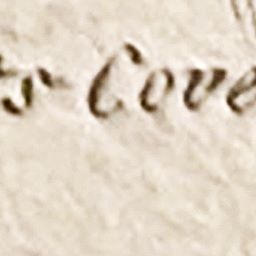 ts Cove